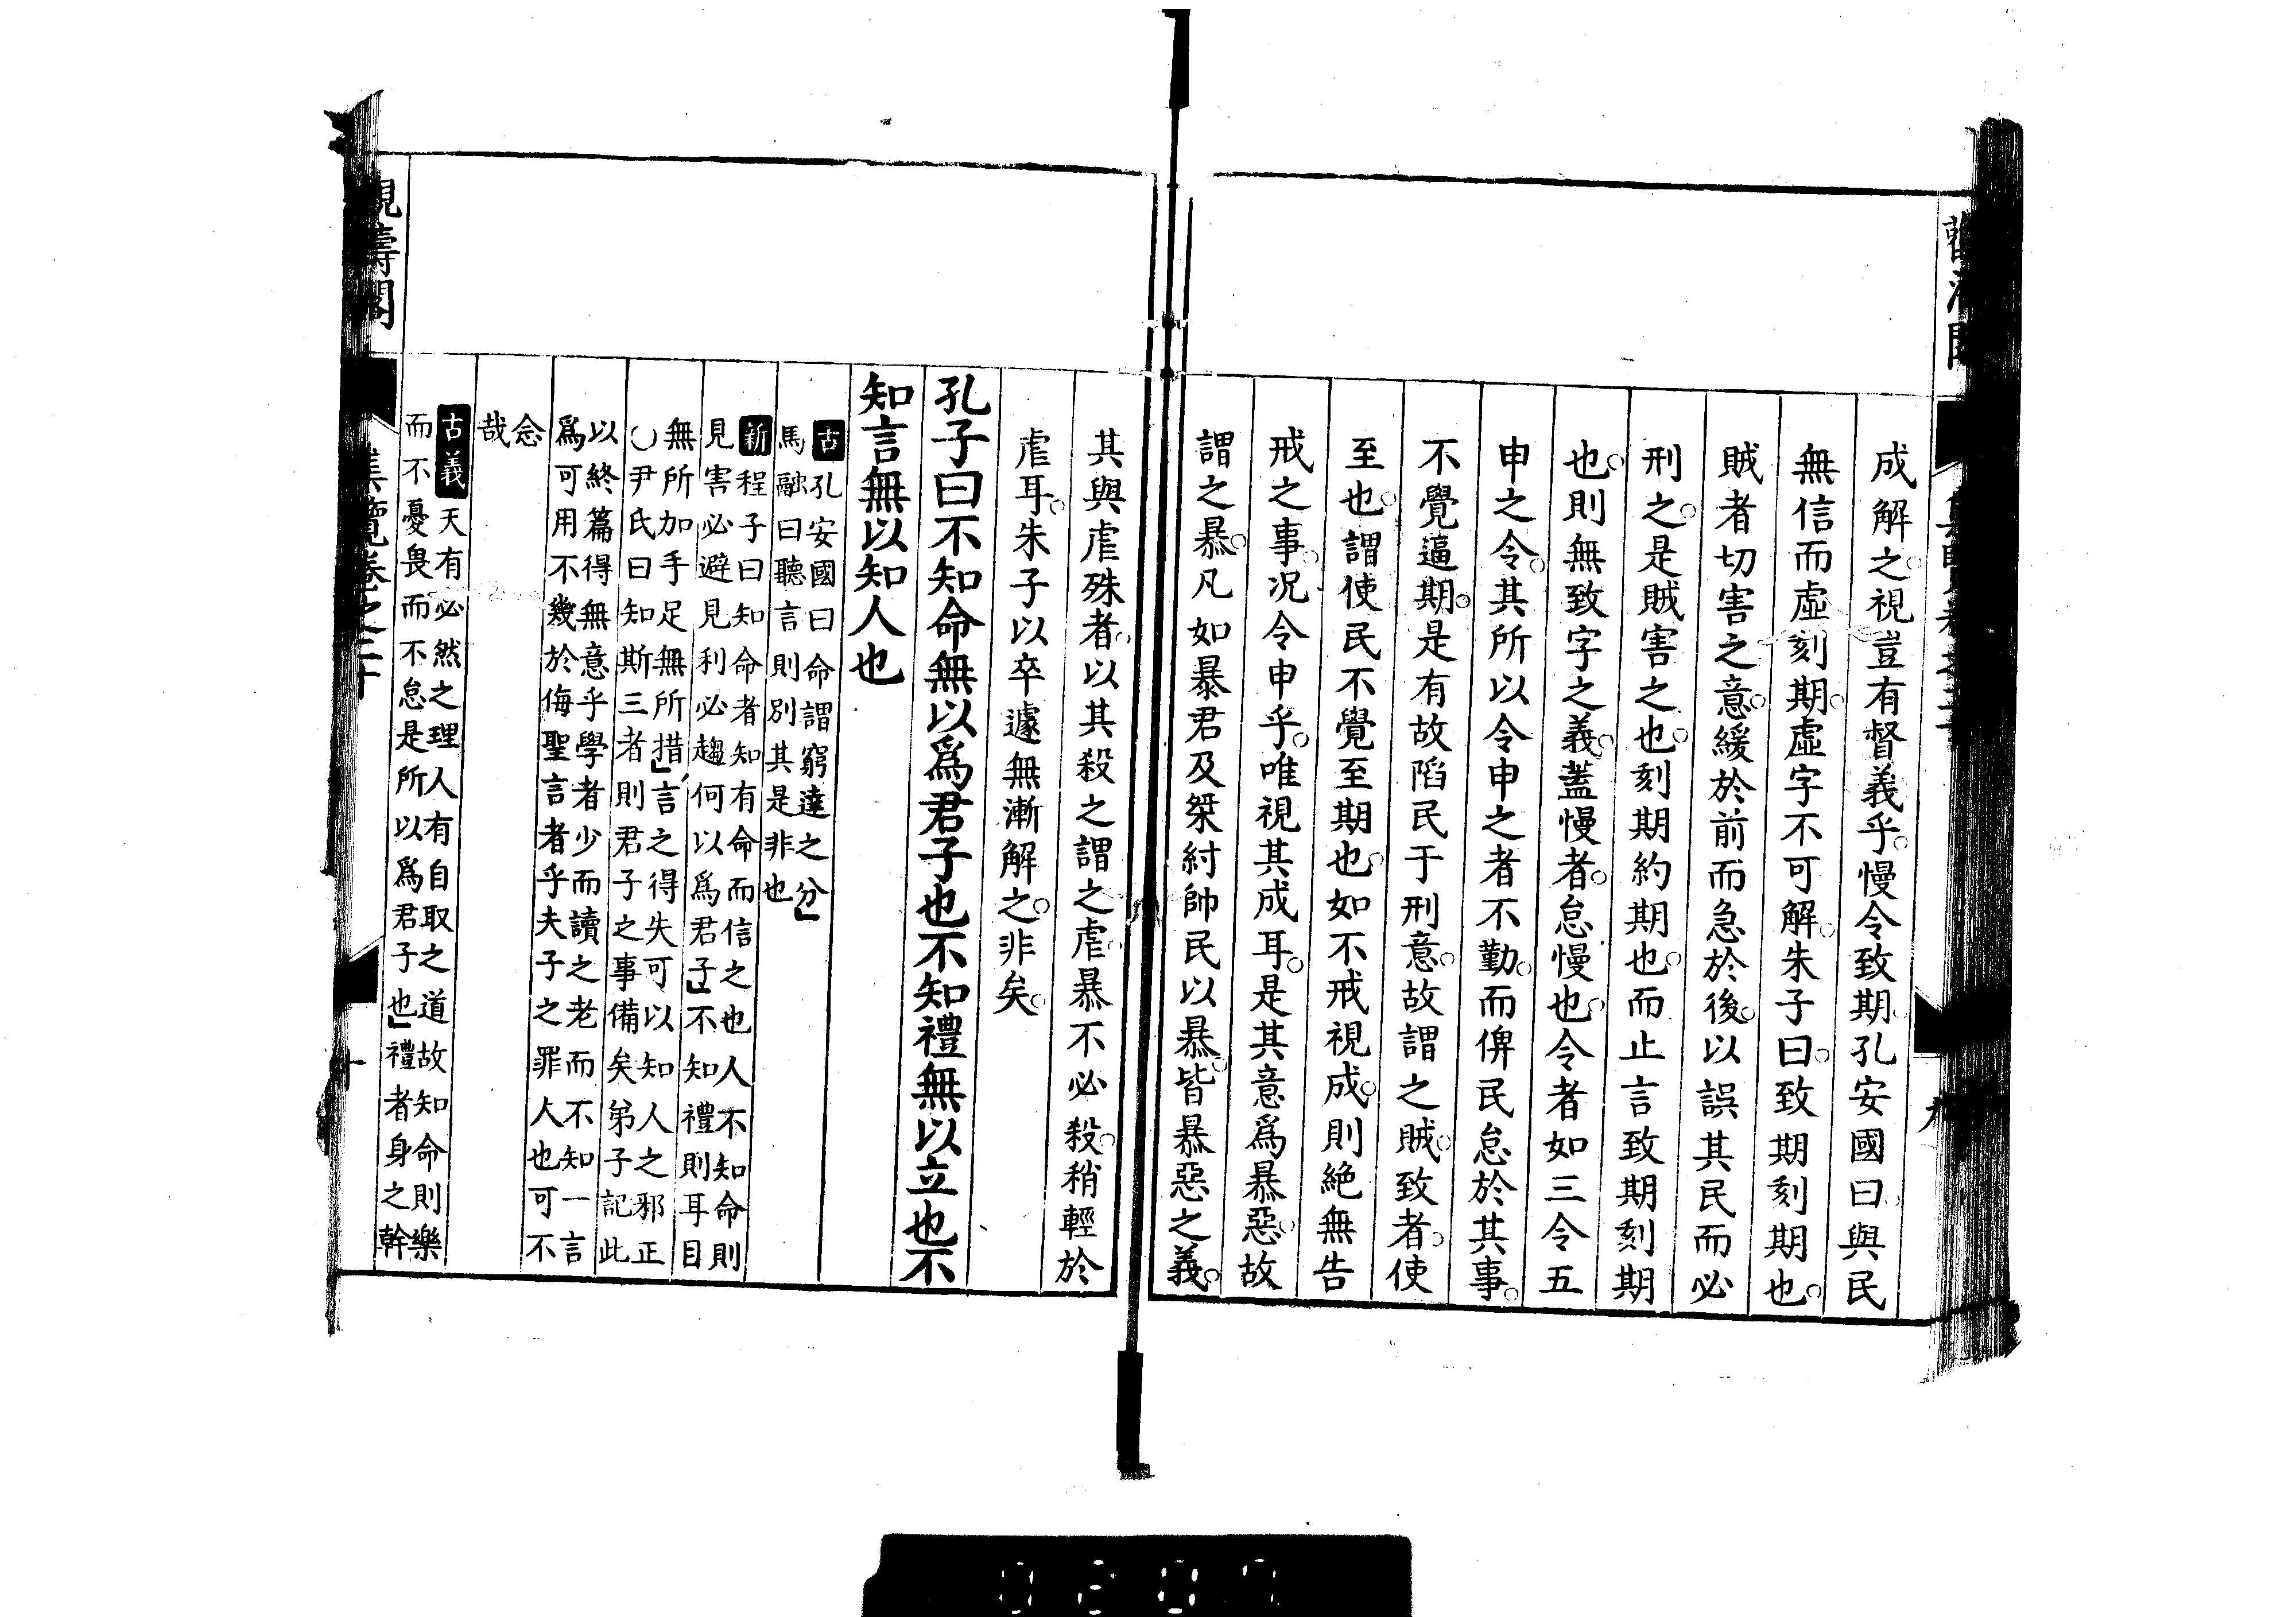 成解之視豈有督義乎慢令致期孔安國曰與民
無信而虛刻期虛字不可解朱子曰致期刻期也
賊者切害之意緩於前而急於後以誤其民而必
刑之是賊害之也刻期約期也而止言致期刻期
也則無致字之義蓋慢者怠慢也令者如三令五
申之令其所以令申之者不勤而俾民怠於其事
不覺逼期是有故陷民于刑意故謂之賊致者使
至也謂使民不覺至期也如不戒視成則絕無告
戒之事况令申乎唯視其成耳是其意爲暴惡故
謂之暴凡如暴君及桀紂帥民以暴皆暴惡之義
其與虐殊者以其殺之謂之虐暴不必殺稍輕於
虐耳朱子以卒遽無漸解之非矣
孔子曰不知命無以爲君子也不知禮無以立也不
知言無以知人也
古孔安國曰命謂窮達之分
馬融曰聽言則別其是非也
新程子曰知命者知有命而信之也人不知命則
見害必避見利必趨何以爲君子不知禮則耳目
無所加手足無所措言之得失可以知人之邪正
○尹氏曰知斯三者則君子之事備矣弟子記此
以終篇得無意乎學者少而讀之老而不知一言
爲可用不幾於侮聖言者乎夫子之罪人也可不
念
哉
古義天有必然之理人有自取之道故知命則樂
而不憂畏而不怠是所以爲君子也禮者身之幹
覽卷之二十
十